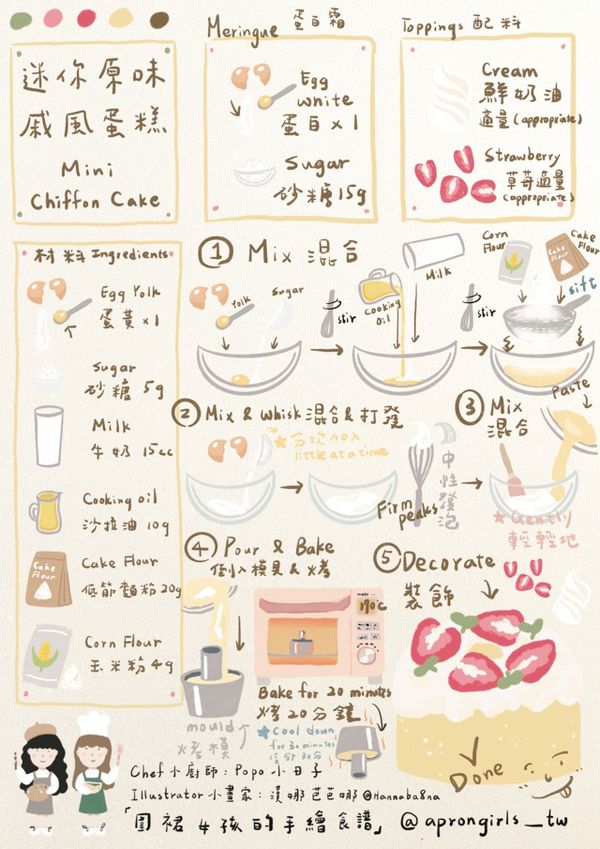 迷你原味
戚風蛋糕
Mini
Chiffon Cake
Meringue 蛋白霜
Egg
white
蛋白 x 1
Sugar
砂糖 15g
Toppings 配料
Cream
鮮奶油
適量 (appropriate)
Strawberry
草莓適量
(appropriate)
材料 Ingredients
Egg Yolk
蛋黃 x 1
Sugar
砂糖 5g
Milk
牛奶 15cc
Cooking oil
沙拉油 10g
Cake Flour
Cake Flour
低筋麵粉 20g
Corn Flour
玉米粉 4g
① Mix 混合
Yolk
Sugar
stir
Cooking
Oil
Milk
stir
Corn
Flour
Cake
Flour
Cake
Flour
sift
② Mix & Whisk 混合 & 打發
分次加入
little at a time
Firm
peaks
中性發泡
③ Mix
混合
Paste
Gently
輕輕地
④ Pour & Bake
倒入模具 & 烤
170°c
mould
烤模
Bake for 20 minutes
烤 20 分鐘
Cool down
for 30 minutes
冷卻 30分
⑤ Decorate
裝飾
Done
Chef 小廚師：Popo 小日子
Illustrator 小畫家：漢娜芭芭娜 @Hannaba8na
「圍裙女孩的手繪食譜」 @aprongirls_tw